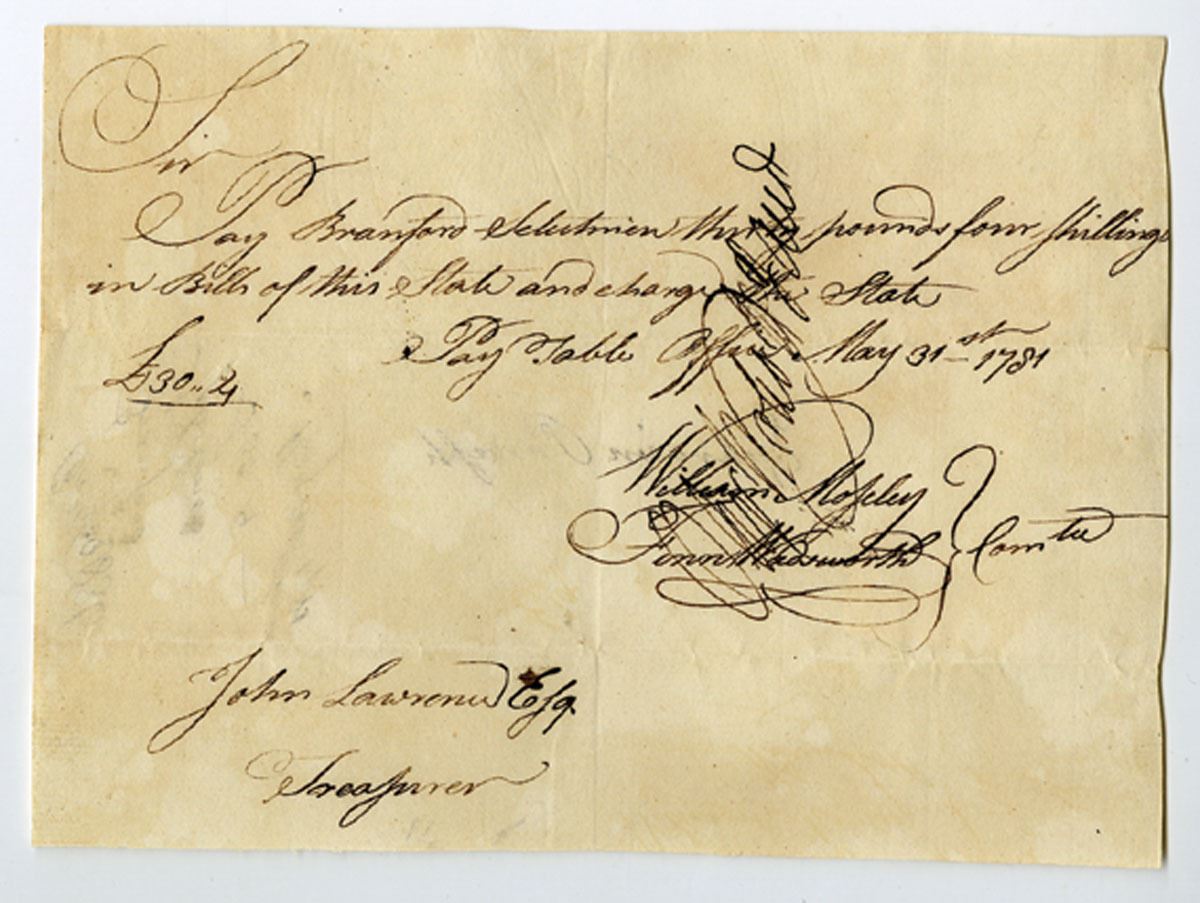 Sir
Pay Branford Selectmen thirty pounds four shillings
in Bills of this State and charge the State
£30,, 4
Pay Table Office May 31st 1781
William Moseley
Fenn Wadsworth } Comtee
John Lawrence Esq.
Treasurer